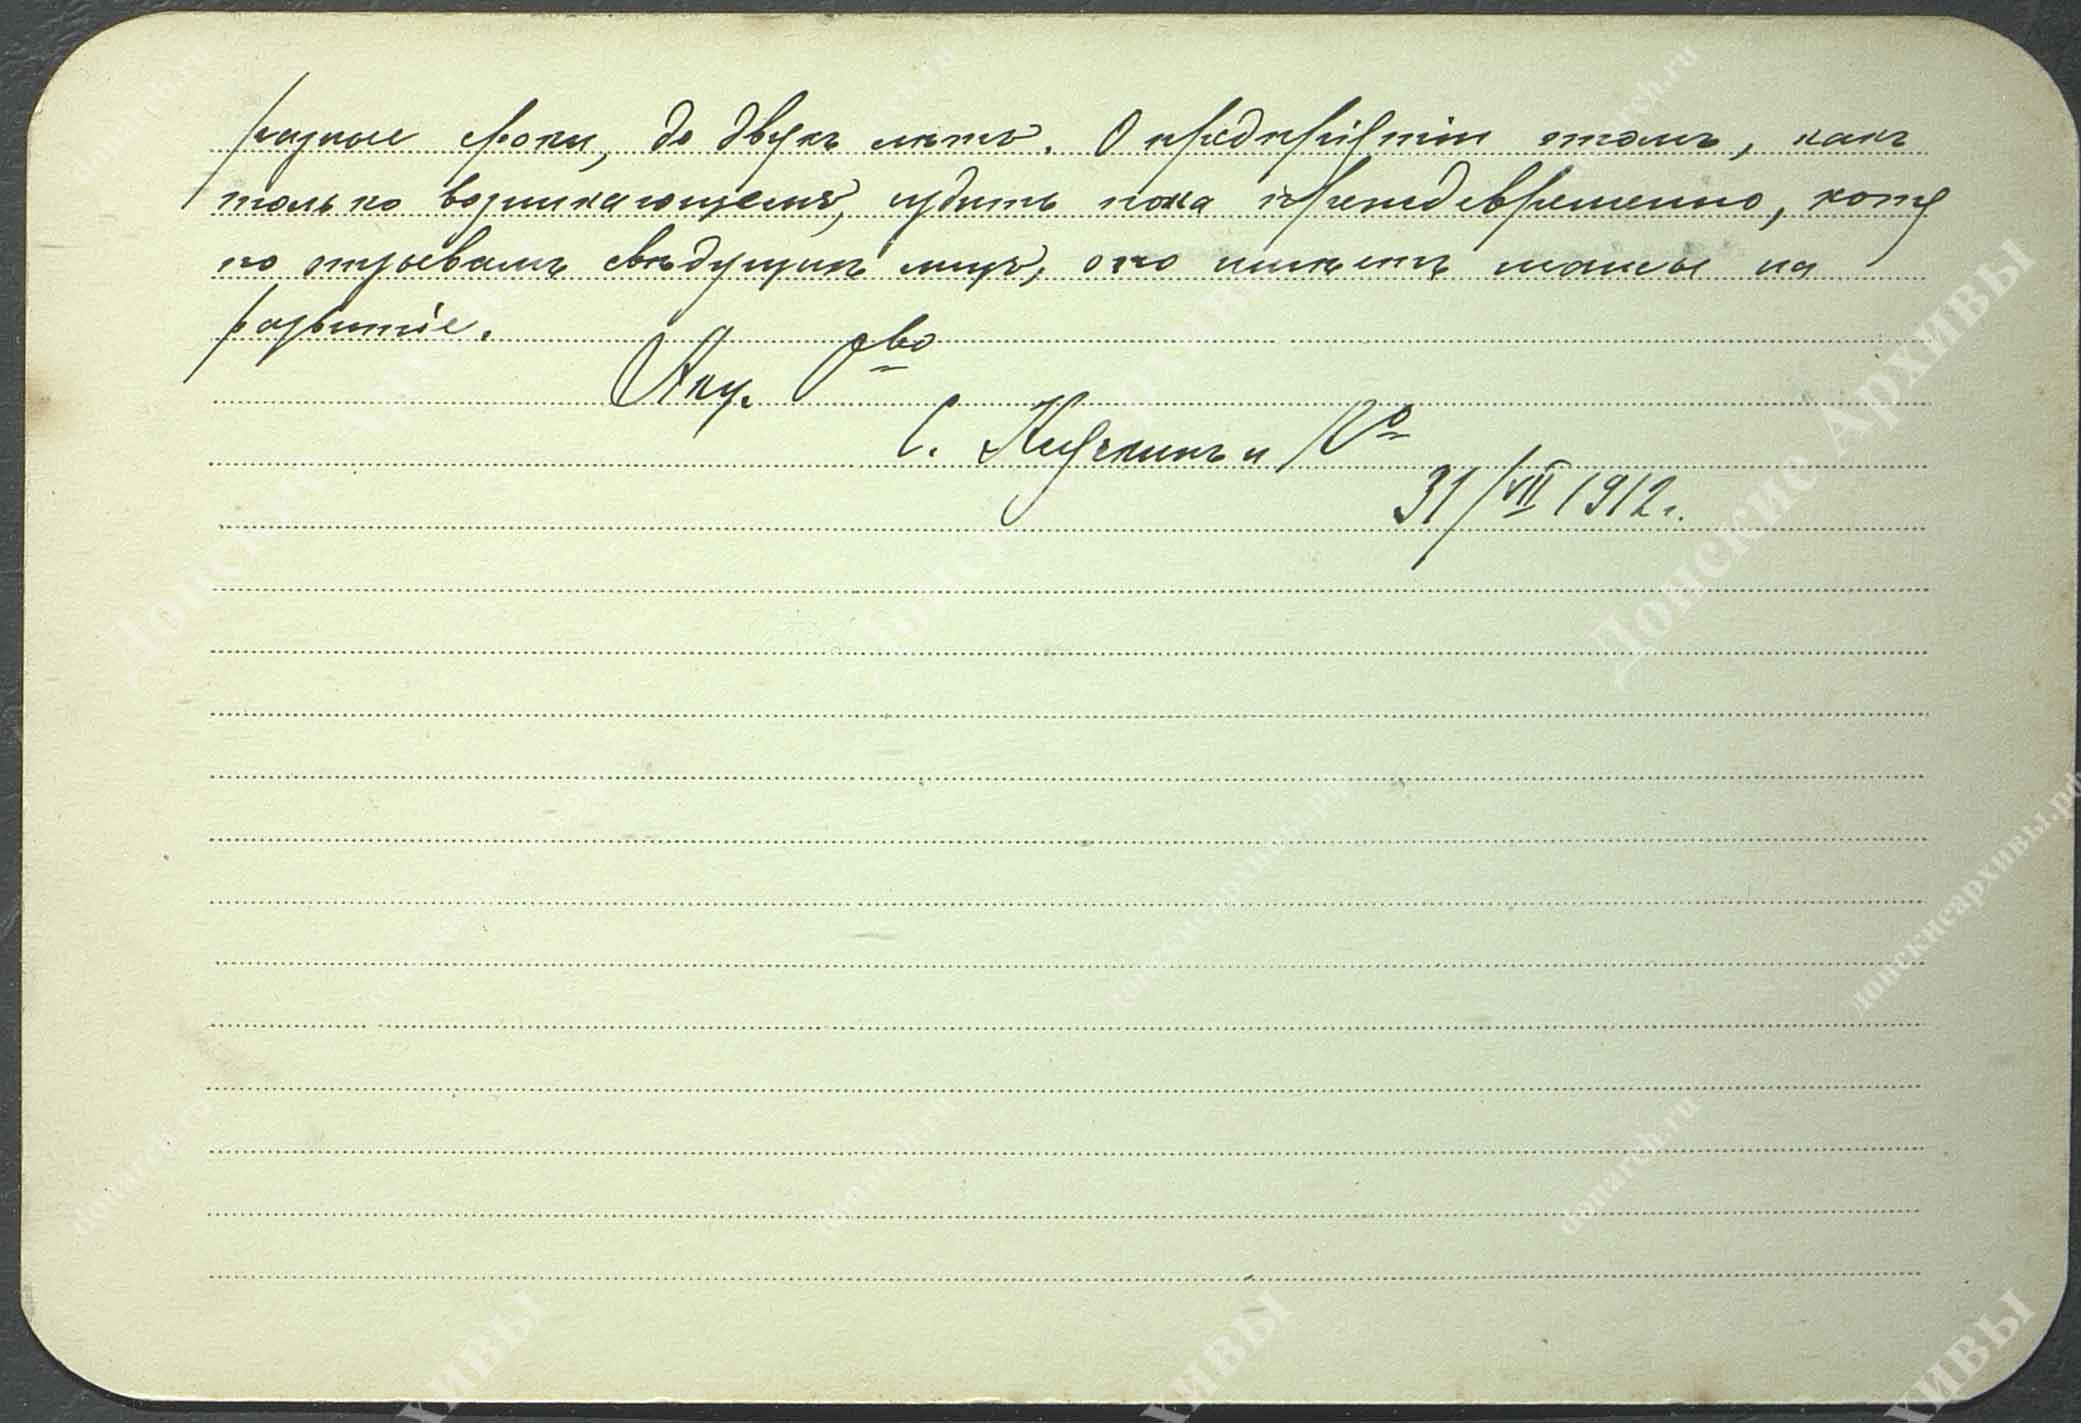 разные сроки, до двухъ лѣтъ. О предпріятіи этомъ, какъ
только возникающемъ, судить пока преждевременно, хотя
по отзывамъ свѣдущихъ лицъ, оно имѣетъ шансы на
развитіе.
Акц. О-во
С. Кирскинъ и Ко
31/VII 1912 г.
Донские Архивы
донскиеархивы.рф
donarch.ru